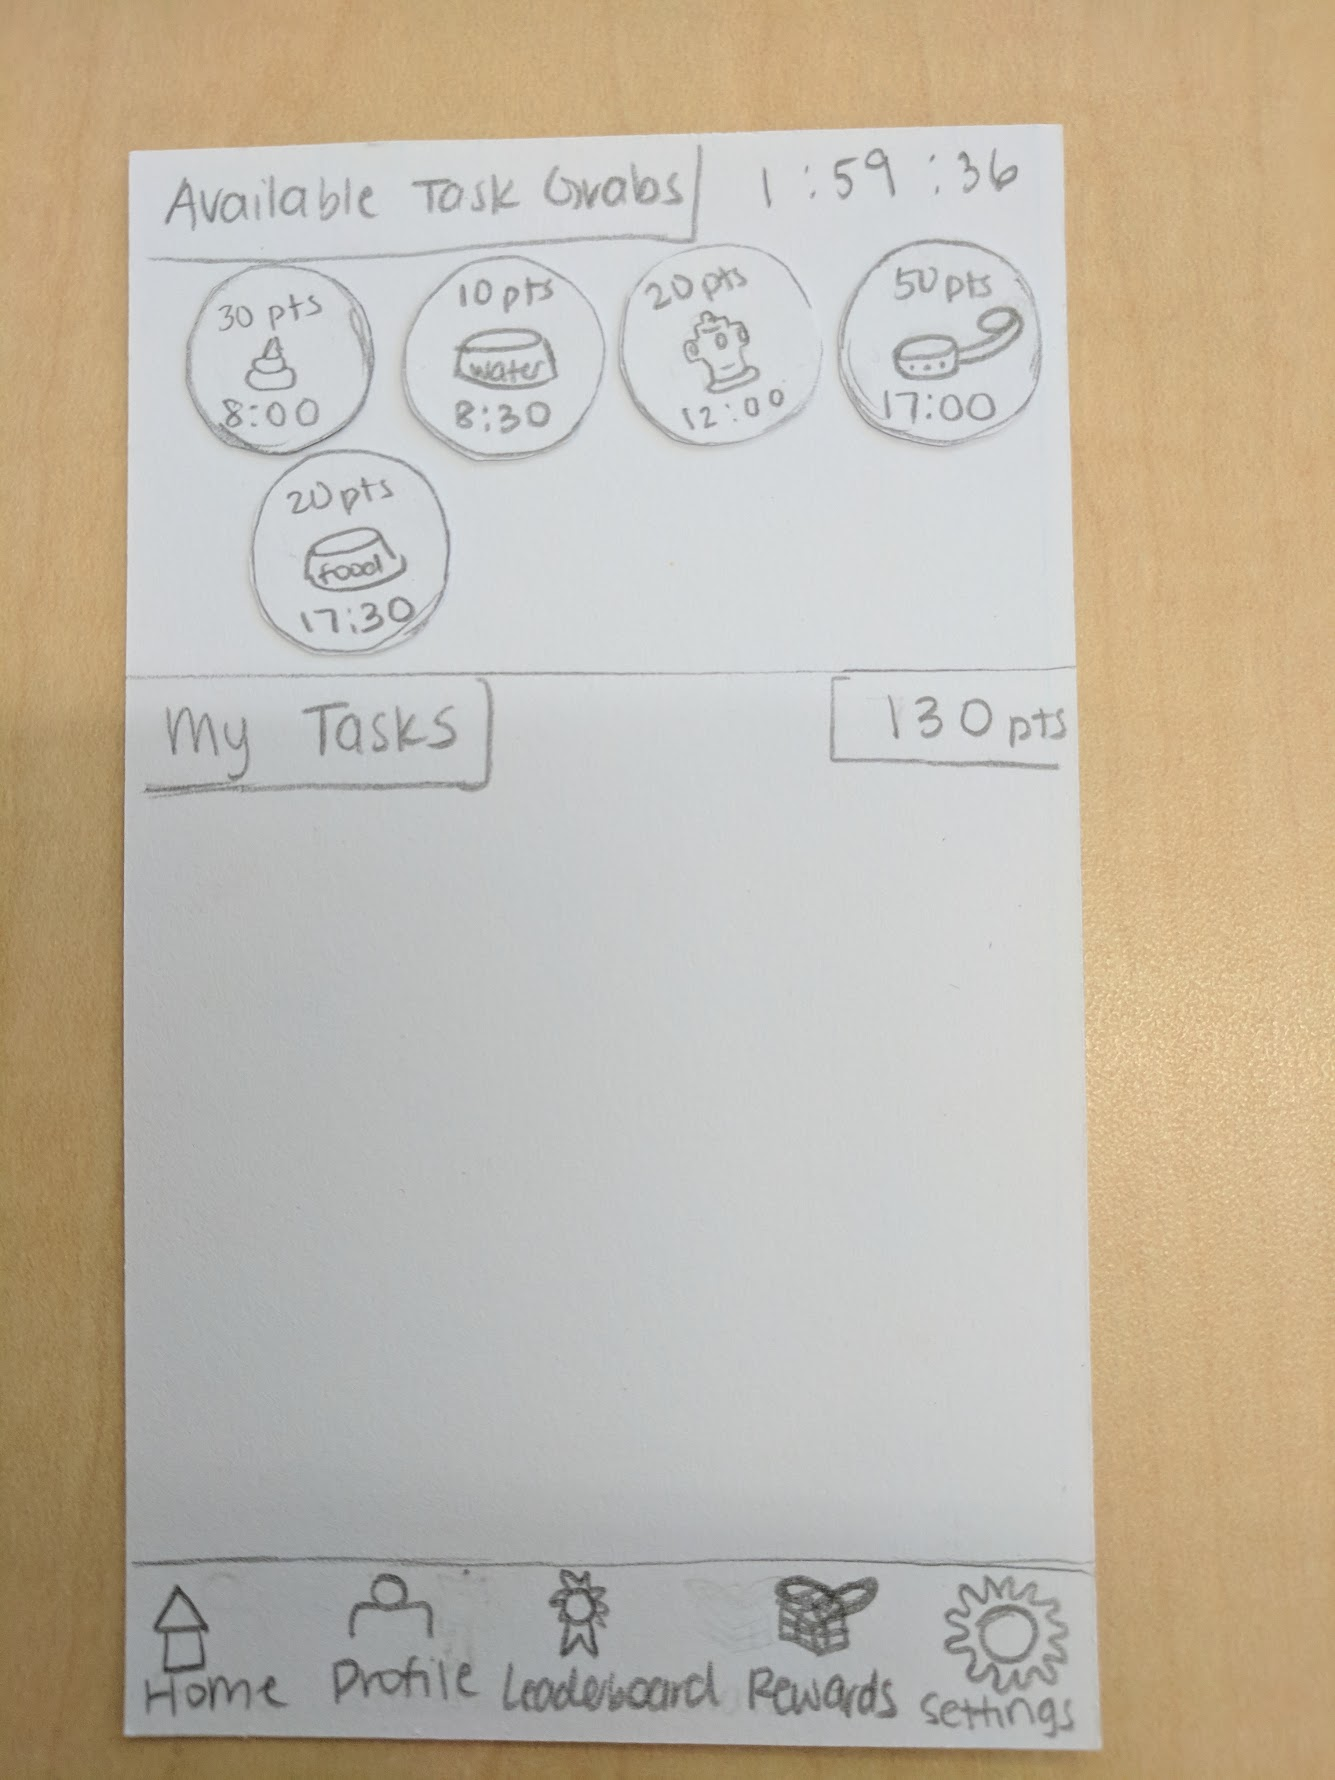 Available Task Grabs
1:59:36
30 pts
8:00
10 pts
water
8:30
20 pts
12:00
50 pts
17:00
20 pts
food
17:30
My Tasks
130 pts
Home
Profile
Leaderboard
Rewards
Settings